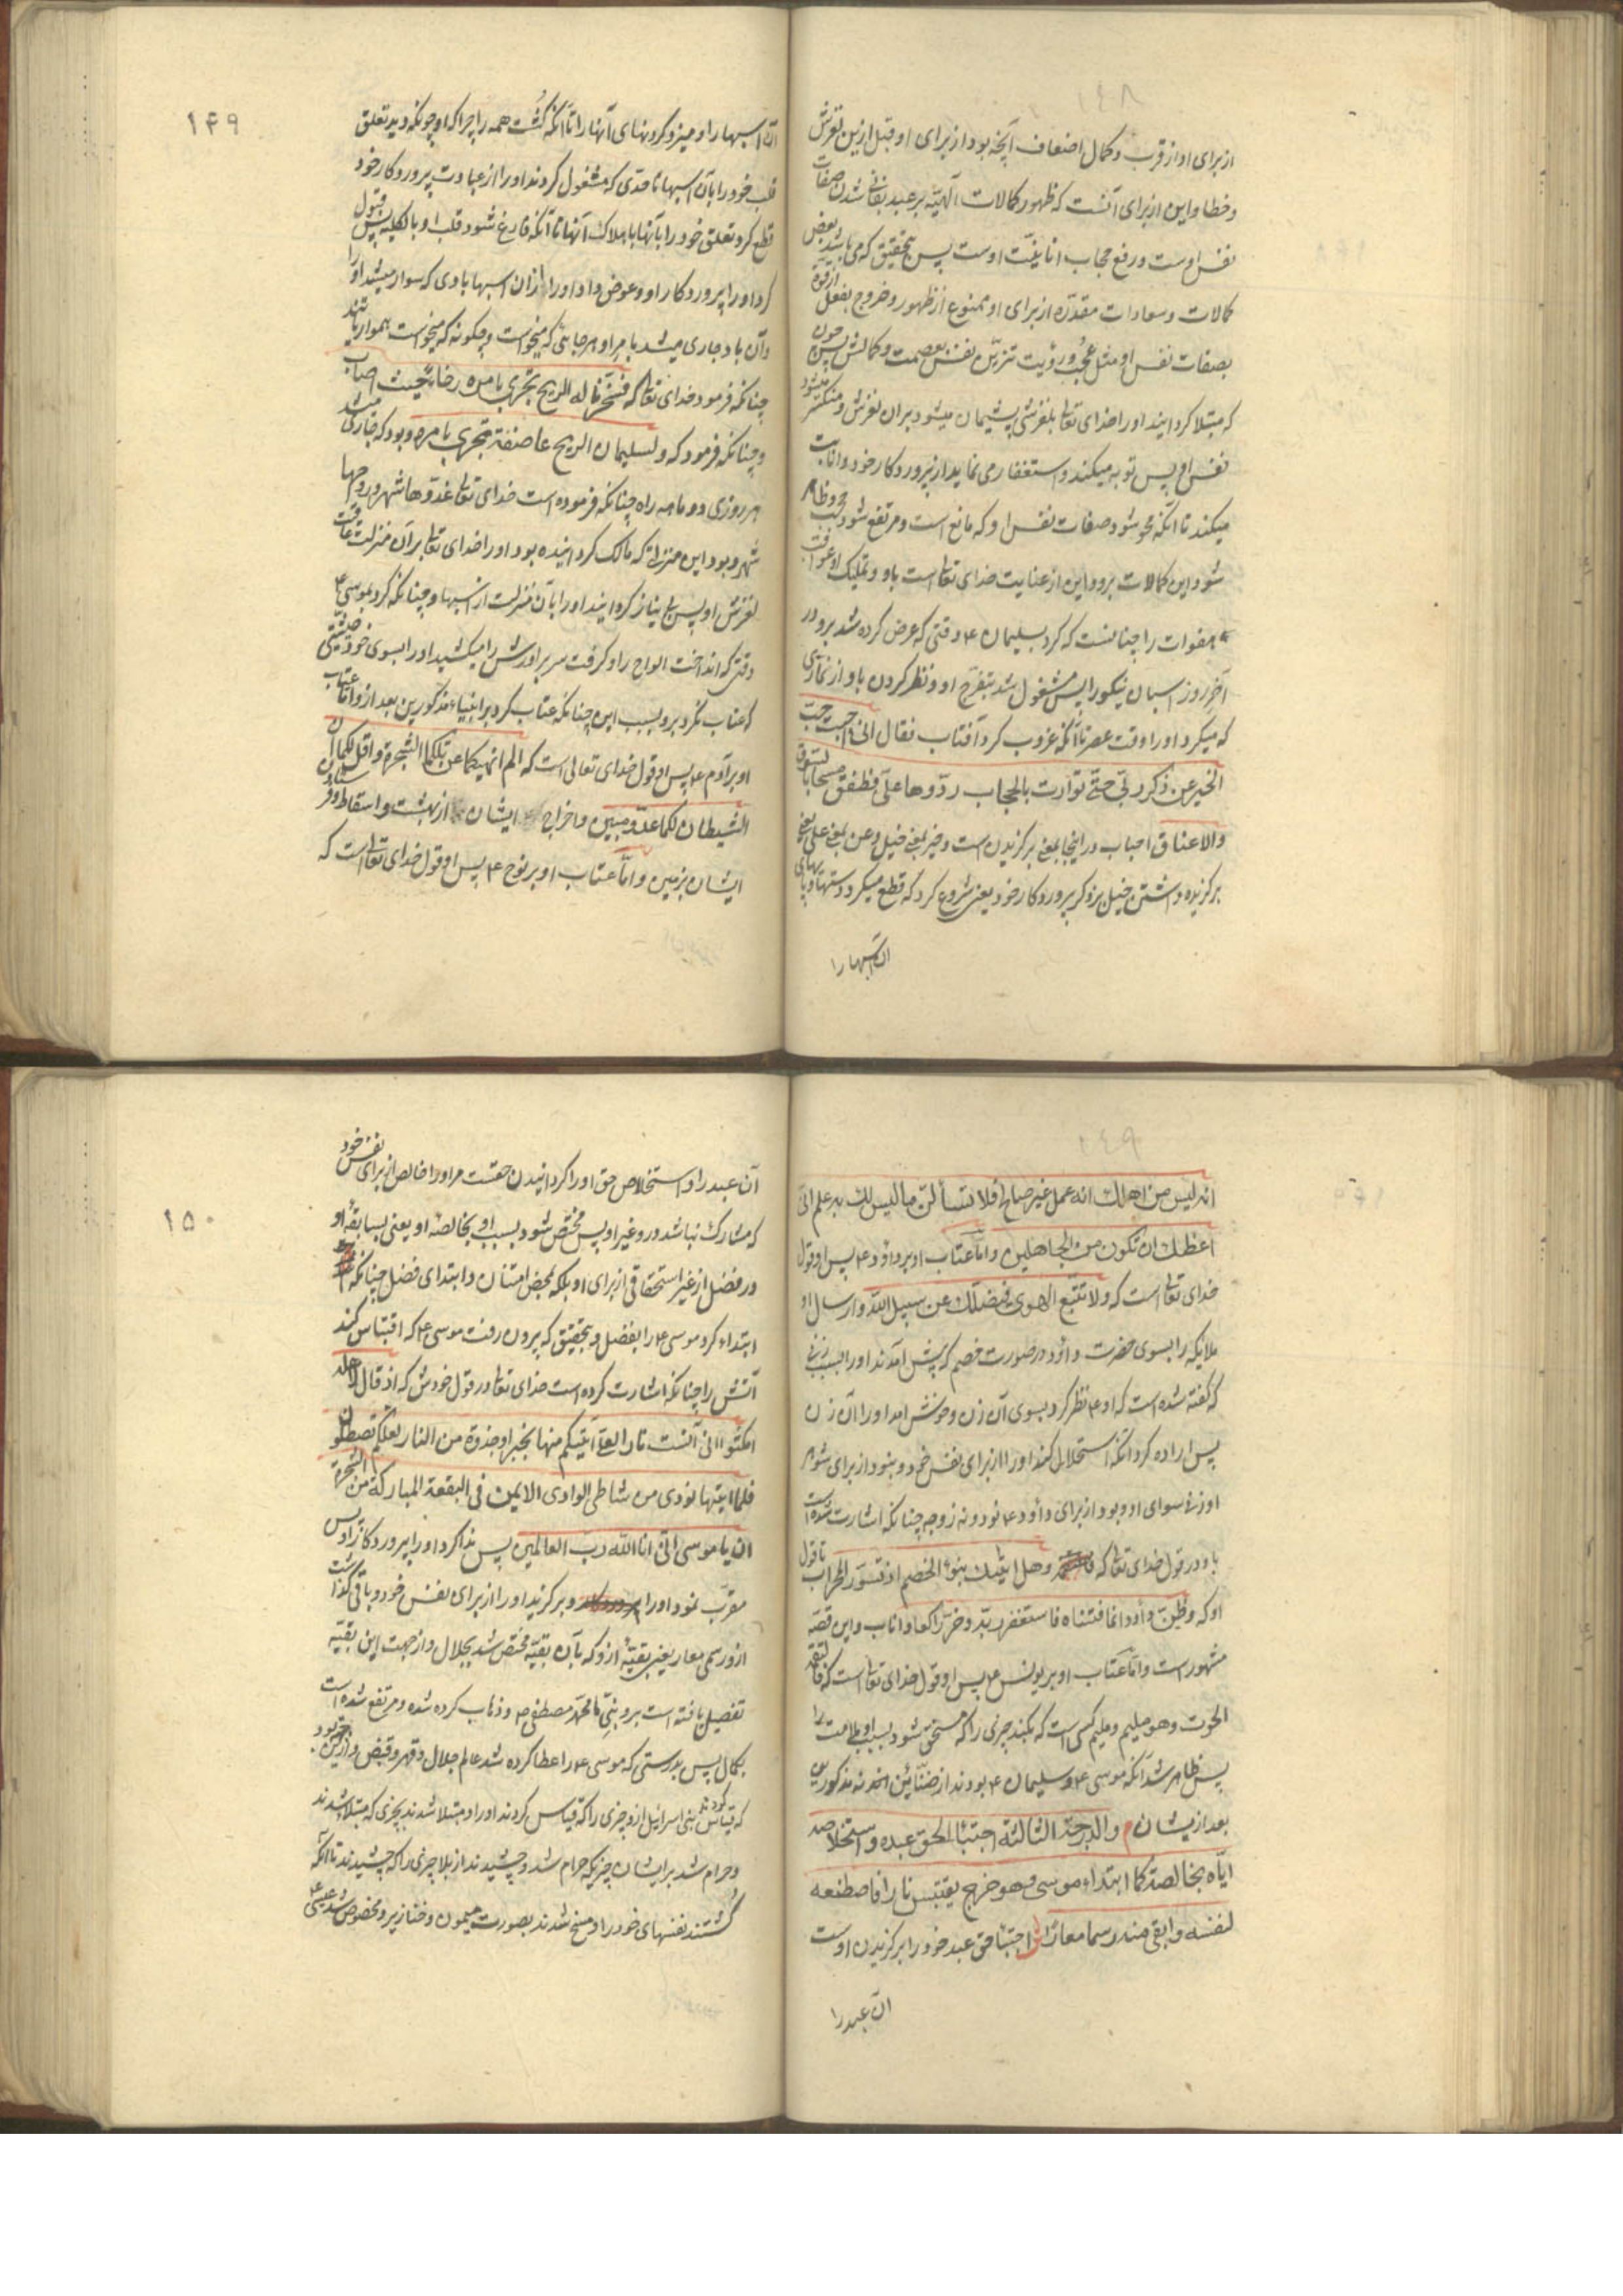 ١٤٨
از برای او از قرب و کمال اضعاف آنچه بود از برای او قبل ازین لغزش
و خطا و این از برای آنست که ظهور کمالات الهیّه بر عبد بفانی شدن صفات
نفس اوست و رفع حجاب انانیّت اوست پس بتحقیق که می باشد بعض
کمالات و سعادات مقدّره از برای او ممنوع از ظهور و خروج بفعل از قوة
بصفات نفس او مثل عجب و رؤیت تنزیه نفس بعصمت و کمالش پس چون
که مبتلا کردانید او را خدای تعالی بلغزشی پشیمان میشود بر ان لغزش و منکسر میشود
نفس او پس توبه میکند و استغفار می نماید از پروردکار خود و انابت
میکند تا انکه محو شود صفات نفس او که مانع است و مرتفع شود حجب و ظاهر
شود این کمالات برو و این از عنایت خدای تعالی است باو و تملیک او عواقب
هفوات را چنانست که کرد بسلیمان ۴ وقتی که عرض کرده شد برو در
آخر روز اسبان نیکو را پس مشغول شد بتفرّج او و نظر کردن باو از نمازی
که میکرد او را وقت عصر تا آنکه غروب کرد آفتاب فقال انی احببت حبّ
الخیر عن ذکر ربّی حتّی توارت بالحجاب ردّوها علیّ فطفق مسحا بالسوق
والاعناق احباب در اینجا بمعنی برکزیدن است و خیر بمعنی خیل و عن بمعنی علی یعنی
برکزیده داشتن خیل بر ذکر پروردکار خود یعنی شروع کرد که قطع میکرد دستها و پاهای
ان اسبها را
١۴٩
آن اسبها را و میزد کردنهای آنها را تا آنکه کشت همه را چرا که او چونکه دید تعلق
قلب خود را بآن اسبها تا حدّی که مشغول کردند او را از عبادت پروردکار خود
قطع کرد تعلق خود را بآنها باهلاک آنها تا آنکه فارغ شود قلب او بالکلیه پس قبول
کرد او را پروردکار او و عوض داد او را از ان اسبها بادی که سوار میشد او را
و آن باد جاری میشد بامر او هر جایی که میخواست و چکونه که میخواست هموار یا تند
چنانکه فرمود خدای تعالی که فسخّرنا له الریح تجری بامره رخاءً حیث اصاب
و چنانکه فرمود که ولسلیمان الریح عاصفة تجری بامره و بود که جاری میشد
هر روزی دو ماهه راه چنانکه فرموده است خدای تعالی غدوّها شهر و رواحها
شهر و بود این منزلت که مالک کردانیده بود او را خدای تعالی بر آن منزلت عاقبت
لغزش او پس بی نیاز کردانید او را بآن منزلت از اسبها و چنانکه کرد بموسی ۴
وقتی که انداخت الواح را و کرفت سر برادرش را میکشید او را بسوی خود حیثیتی
که عتاب نکرد برو بسبب این چنانکه عتاب کرد بر انبیاء مذکورین بعد ازو امّا عتاب
او بر آدم ۴ پس او قول خدای تعالی است که الم انهکما عن تلکما الشجرة واقل لکما ان
الشیطان لکما عدوّ مبین و اخراج ایشان از بهشت و اسقاط
ایشان بزمین و امّا عتاب او بر نوح ۴ پس او قول خدای تعالی است که
١٤٩
انه لیس من اهلک انه عمل غیر صالح فلا تسألن ما لیس لک به علم انّی
اعظک ان تکون من الجاهلین و امّا عتاب او بر داود ۴ پس او قول
خدای تعالی است که ولا تتّبع الهوی فیضلّک عن سبیل اللّه و ارسال او
ملایکه را بسوی حضرت داود در صورت خصم که پیش آمدند او را بسبب زنی
که کفته شده است که او ۴ نظر کرد بسوی آن زن و خوش امد او را آن زن
پس اراده کرد آنکه استحلال کند او را از برای نفس خود و نبود از برای شوهر
او زنی سوای او و بود از برای داود ۴ نود و نه زوجه چنانکه اشارت شده است
باو در قول خدای تعالی که وهل اتیک نبؤ الخصم اذ تسوّر المحراب تا قول
او که وظنّ داود انما فتنّاه فاستغفر ربّه وخرّ راکعا و اناب و این قصّه
مشهور است و امّا عتاب او بر یونس ۴ پس او قول خدای تعالی است که فالتقمه
الحوت وهو ملیم و ملیم کسی است که بکند چیزی را که مستحق شود بسبب او ملامت را
پس ظاهر شد آنکه موسی ۴ و سلیمان ۴ بودند از ضنائن اخذ نه مذکورین
بعد از ایشان م والدرجة الثالثة اجتباء الحق عبده واستخلاصه
ایّاه بخالصة کما ابتداء موسی وهو خرج یقتبس نارا فاصطنعه
لنفسه وابقی منه رسما معارا ش اجتباء حق عبد خود را برکزیدن اوست
ان عبد را
١۵٠
آن عبد را و استخلاص حق او را کردانیدن حقست مر او را خالص از برای نفس خود
که مشارک نباشد درو غیر او پس مختص شود بسبب او بخالصهٔ او یعنی بسابقهٔ او
در فضل از غیر استحقاقی از برای او بلکه بمحض امتنان و ابتدای فضل چنانکه
ابتداء کرد موسی ۴ را بفضل و بتحقیق که بیرون رفت موسی ۴ که اقتباس کند
آتش را چنانکه اشارت کرده است خدای تعالی در قول خودش که اذ قال لاهله
امکثوا انی آنست نارا لعلّی آتیکم منها بخبر او جذوة من النار لعلکم تصطلون
فلما اتیها نودی من شاطی الوادی الایمن فی البقعة المبارکة من الشجرة
ان یا موسی انّی انا اللّه ربّ العالمین پس ندا کرد او را پروردکار او پس
مقرّب نمود او را و برکزید او را از برای نفس خود و باقی کذاشت
ازو رسمی معار یعنی بقیّهٔ ازو که بآن بقیّه مختص شد بجلال و از جهت این بقیّه
تفصیل یافته است برو نبیّ ما محمّد مصطفی ص و ذهاب کرده شده و مرتفع شده است
بکمال پس بدرستی که موسی ۴ را اعطا کرده شد عالم جلال و قهر و قبض و ازین جهت بود
که قیاس کردند بنی اسرائیل ازو چیزی را که قیاس کردند او را و مبتلا شدند بچیزی که مبتلا شدند
و حرام شد بر ایشان چیزیکه حرام شد و چشیدند از بلا چیزی را که چشیدند تا آنکه
کشتند نفسهای خود را و مسخ شدند بصورت میمون و خنازیر و مخصوص شد عیسی ۴